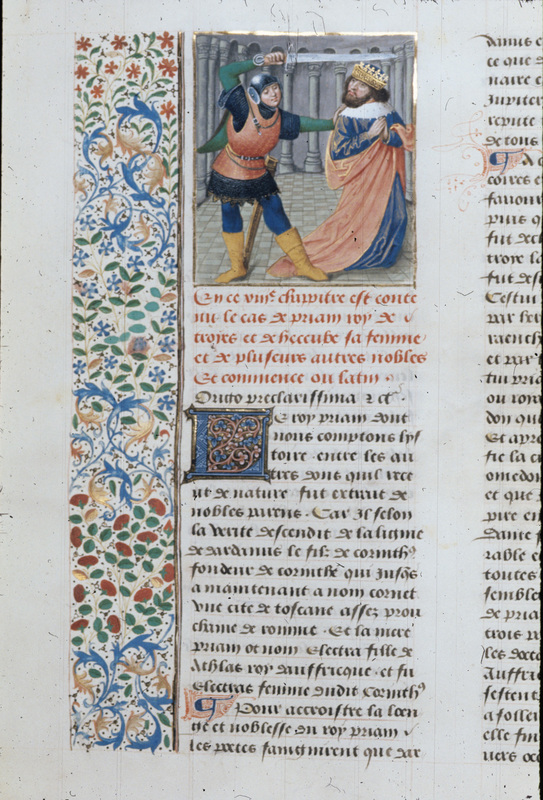 En ce viiie chapitre est conte
nu le cas de priam roy de
troyes et de heccube sa femme
et de plusieurs autres nobles
Et commence ou latin
Orito preclarissima etc
Le roy priam dont
nous comptons lys
toire entre les au
tres dons quil rece
ut de nature fut extrait de
nobles parens. Car Il selon
la verite descendit de la ligne
de dardanus le filz de corinth9
fondeur de corinthe qui Jusqs
a maintenant a nom cornet
vne cite de toscane assez prou
chaine de romme. Et la mere
priam ot nom Electra fille de
Athlas roy dauffricque et fu
Electras femme dudit Corinth9
Pour accroistre la loen
ge et noblesse du roy priam
les poetes faingnirent que dar
danus e
ce que
naire e
Jupiter
repute
de tous
A c
coires e
fauour
puis q
fut decl
troye l
fut des
Cestui
par fer
et par
tui pria
ou roya
don que
Et apre
fie la ci
omedon
et que
pire en
dame
rable e
toutes
semble
de pria
trois p
les docte
Auffri
sestent
a folle
elle fin
uers oc